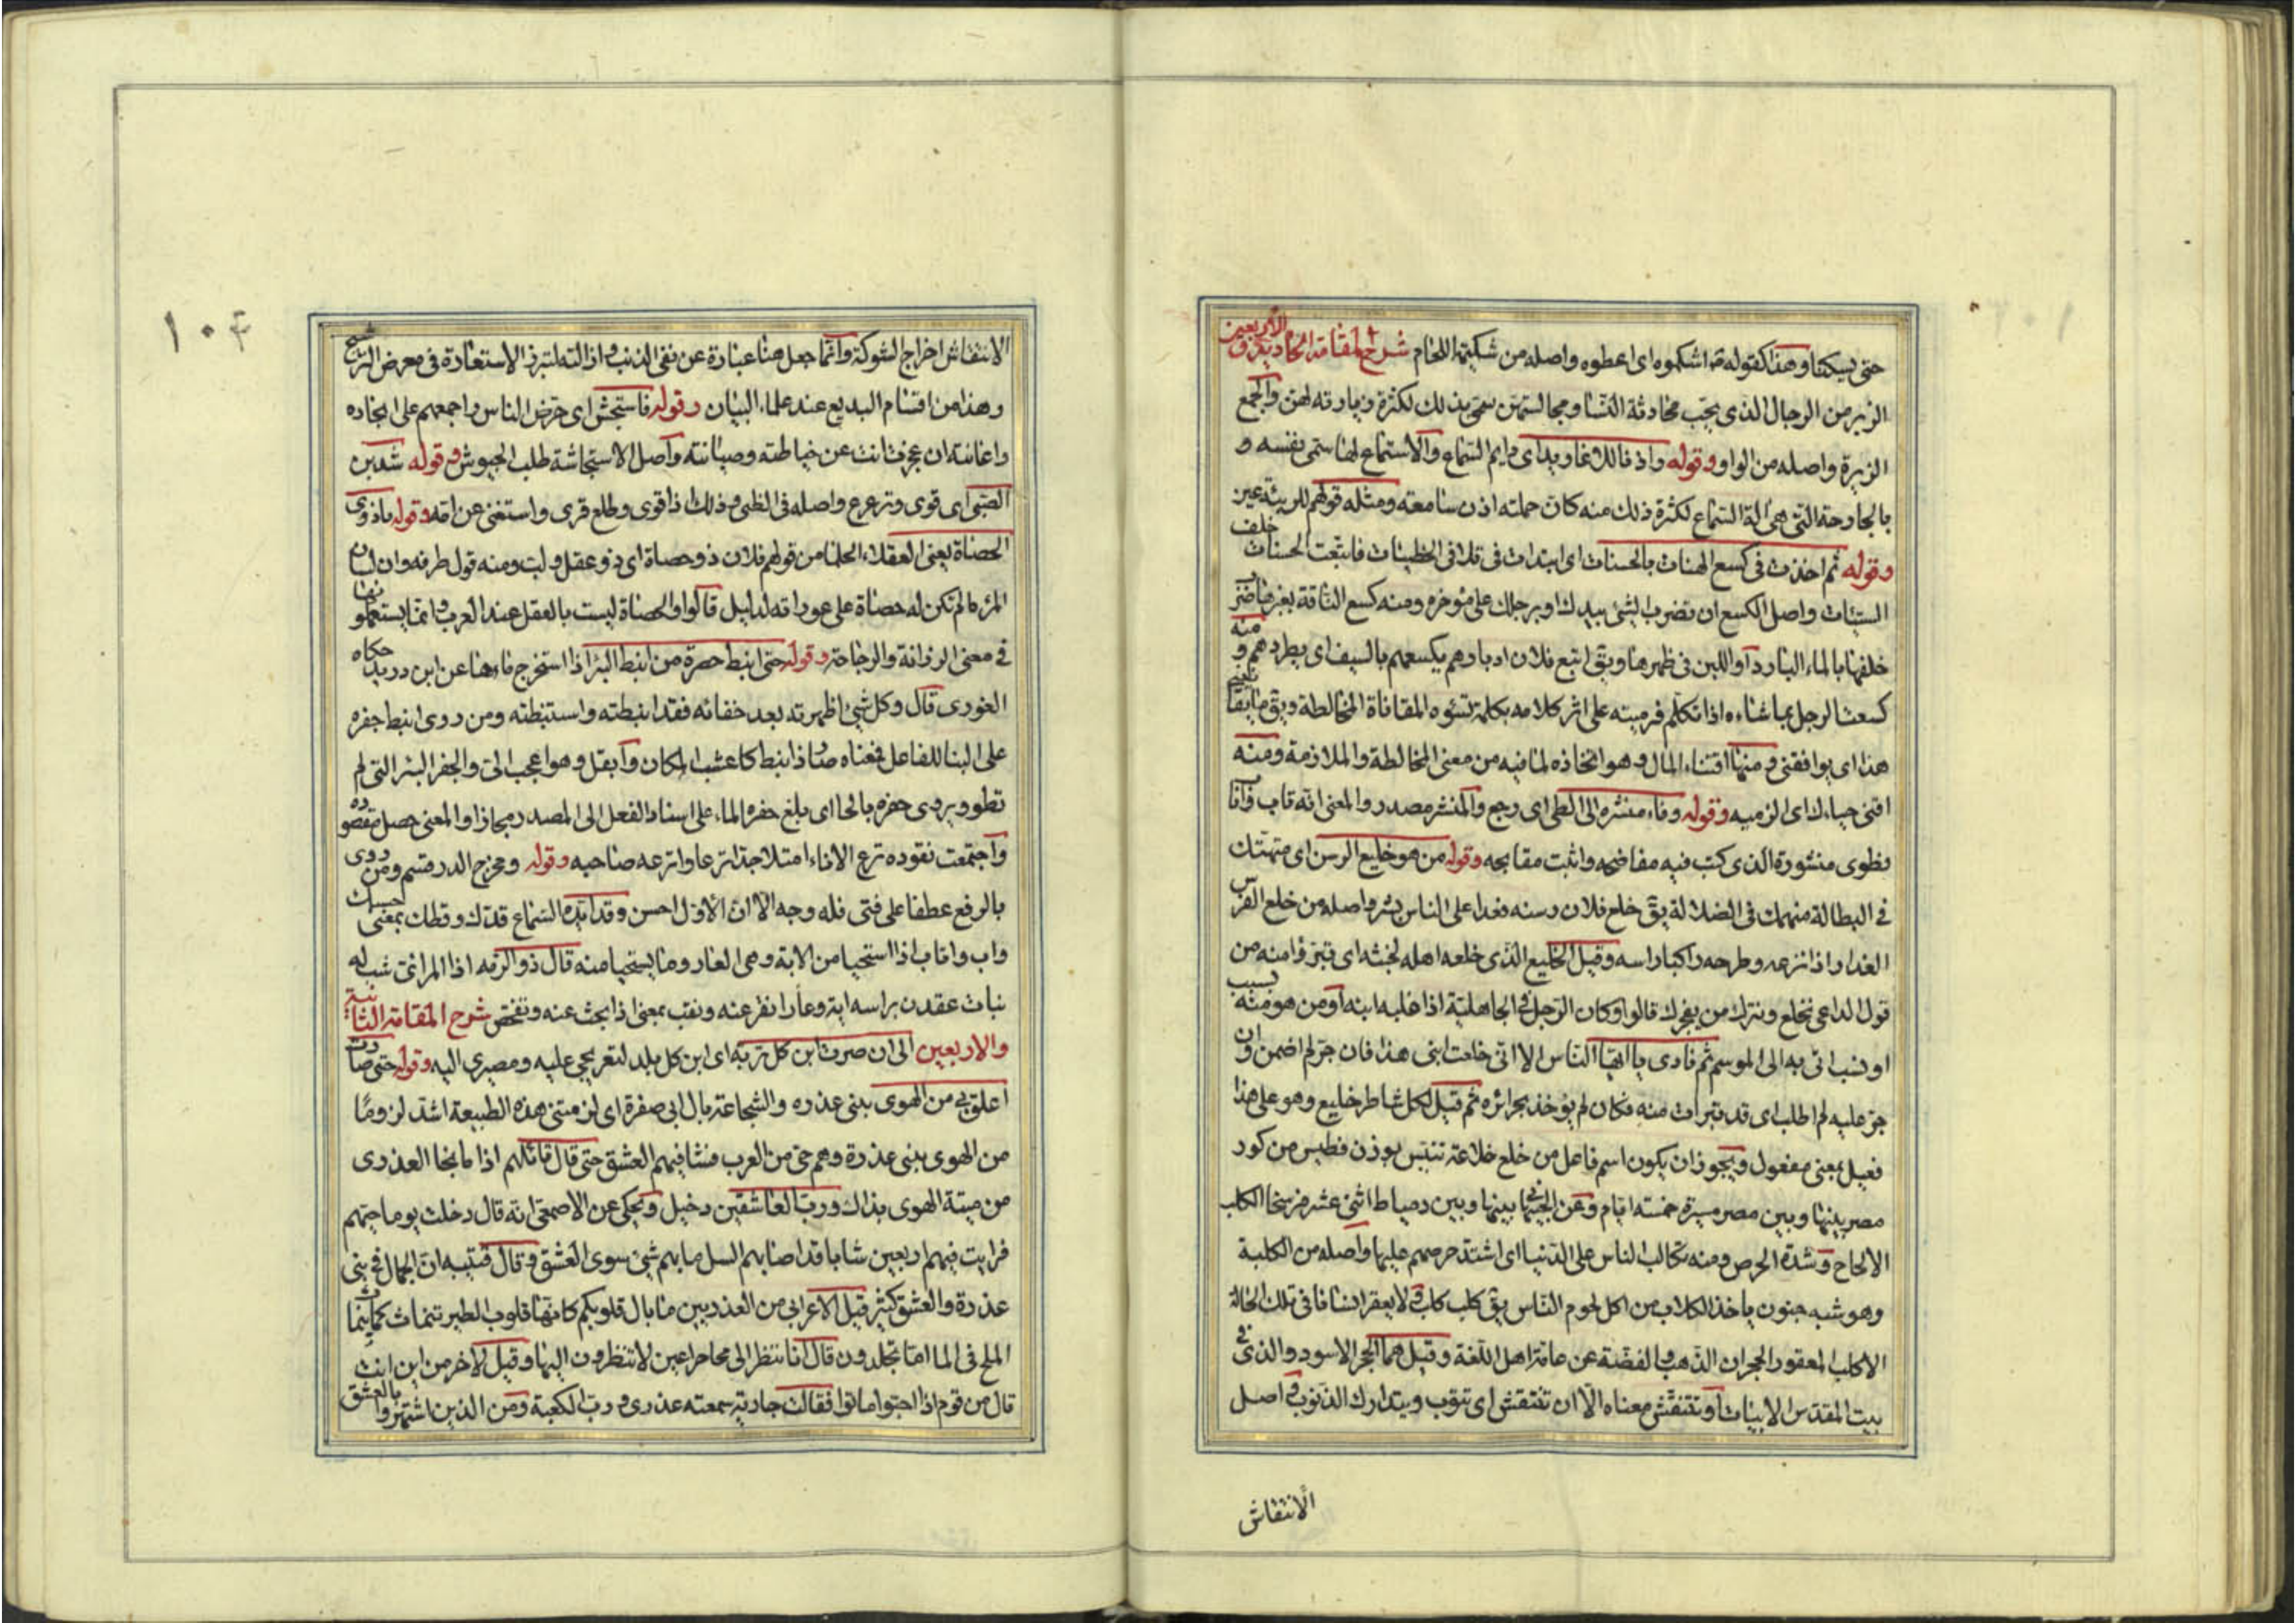 حتى يسكتنا وهذا كقوله اشكموه اى اعطوه واصله من شكيمة اللجام شرح المقامة الحادية والاربعين
الزير من الرجال الذى يحب محادثة النسا ومجالستهن سمى بذلك لكثرة زيارته لهن والجمع
الزيرة واصله من الواو وقوله واذنا للاغاريد اى دايم السماع والاستماع لها سمى نفسه و
بالجارحة التى هى آلة السماع لكثرة ذلك منه كان جملته اذن سامعة ومثله قولهم للربيئة عين
وقوله ثم اخذت فى كسع الهنات بالحسنات اى ابتدات فى تلافى الخطيئات فاتبعت الحسنات خلف
السيئات واصل الكسع ان تضرب الشئ بيدك او برجلك على موخره ومنه كسع الناقة بغبرها ضرب
خلفها بالماء البارد او اللبن فى ظهرها ويق اتبع فلان ادبارهم يكسعهم بالسيف اى يطردهم ومنه
كسعت الرجل بما ساءه اذا تكلم فرميته على اثر كلامه بكلمة تسوءه المقاناة المخالطة ويق ما يقانينى
هذا اى يوافقنى ومنها اقتناء المال وهو اتخاذه لما فيه من معنى المخالطة والملازمة ومنه
اقنى حياءك اى الزميه وقوله وفاء منشره الى الطى اى رجع والمنشر مصدر والمعنى انه تاب وآنا
فطوى منشوره الذى كتب فيه مفاضحه واثبت مقابحه وقوله من هو خليع الرسن اى متهتك
فى البطالة منهمك فى الضلالة يق خلع فلان رسنه فعدا على الناس بشر واصله من خلع الفرس
العذار اذا نزعه وطرحه راكبا راسه وقيل الخليع الذى خلعه اهله لخبثه اى تبرؤا منه من
قول الداعى نخلع ونترك من يفجرك قالوا وكان الرجل فى الجاهلية اذا غلبه ابنه او من هو منه بسبب
او نسب اتى به الى الموسم ثم نادى يا ايها الناس الا انى خلعت ابنى هذا فان جر لم اضمن وان
جر عليه لم اطلب اى قد تبرات منه فكان لم يؤخذ بجرائره ثم قيل لكل شاطر خليع وهو على هذا
فعيل بمعنى مفعول ويجوز ان يكون اسم فاعل من خلع خلاعة تنيس بوزن فطيس من كور
مصر بينها وبين مصر مسيرة خمسة ايام وعن الجيهانى بينها وبين دمياط اثنى عشر فرسخا الكلب
الالحاح وشدة الحرص ومنه تكالب الناس على الدنيا اى اشتد حرصهم عليها واصله من الكلبة
وهو شبه جنون ياخذ الكلاب من اكل لحوم الناس يق كلب كلب ولا يعقر انسانا فى تلك الحالة
الا كلب المعقور الحجران الذهب والفضة عن عامة اهل اللغة وقيل هما الحجر الاسود والذى فى
بيت المقدس الابيات او تنتقش معناه الا ان تنتقش اى تتوب وتتدارك الذنوب واصل
الانتقاش
١٠٤
الانتقاش اخراج الشوكة وانما جعل هنا عبارة عن نفى الذنب وازالته لتبرز الاستعارة فى معرض الترشيح
وهذا من اقسام البديع عند علماء البيان وقوله فاستجش اى حرض الناس واجمعهم على انجاده
واعانته ان عجزت انت عن حياطته وصيانته واصل الاستجاشة طلب الجيوش وقوله شدين
الصبى اى قوى وترعرع واصله فى الظبى وذلك اذا قوى وطلع قرنه واستغنى عن امه وقوله ياذوى
الحصاة يعنى العقلاء الحلما من قولهم فلان ذو حصاة اى ذو عقل ولب ومنه قول طرفه وان لسان
المرء مالم تكن له حصاة على عوراته لدليل قالوا والحصاة ليست بالعقل عند العرب وانما يستعملونها
فى معنى الرزانة والرجاحة وقوله حتى انبط حفره من انبط البئر اذا استخرج ماءها عن ابن دريد حكاه
الغورى قال وكل شئ اظهرته بعد خفائه فقد انبطته واستنبطته ومن روى انبط جفره
على البنا للفاعل فمعناه صار ذا نبط كاعشب المكان وآبقل وهو اعجب الى والجفر البئر التى لم
تطو ويروى حفره بالحا اى بلغ حفره الماء على اسناد الفعل الى المصدر مجازا والمعنى حصل مقصوده
واجتمعت نقوده ترع الاناء امتلا جدا ترعا واترعه صاحبه وقوله ومخرج الدر قسم ومن روى
بالرفع عطفا على فتى فله وجه الا ان الاول احسن وقد ايده السماع قدك وقطك بمعنى حسبك
واب واتاب اذا استحيا من الابة وهى العار وما يستحيا منه قال ذو الرمه اذا المرائى شب له
بنات عقدن براسه ابة وعارا نقر عنه ونقب بمعنى اذا بحث عنه وتفحص شرح المقامة الثانية
والاربعين الى ان صرت ابن كل تربه اى ابن كل بلد لتعريجى عليه ومصيرى اليه وقوله حتى صارت
اعلق بى من الهوى ببنى عذره والشجاعة بال ابى صفرة اى لزمتنى هذه الطبيعة اشد لزوما
من الهوى ببنى عذرة وهم حى من العرب فشا فيهم العشق حتى قال قائلهم اذا ما نجا العذرى
من ميتة الهوى فذاك ورب العاشقين دخيل ويحكى عن الاصمعى انه قال دخلت يوما حيهم
فرايت فيهم اربعين شابا قد اصابهم السل ما بهم شئ سوى العشق وقال قتيبه ان الجمال فى بنى
عذرة والعشق كثير قيل لاعرابى من العذريين ما بال قلوبكم كانها قلوب الطير تنماث كما ينماث
الملح فى الما اما تجلدون قال انا ننظر الى محاجر اعين لا تنظرون اليها وقيل لاخر من اين انت
قال من قوم اذا احبوا ماتوا فقالت جارية سمعته عذرى ورب الكعبة ومن الذين اشتهروا بالعشق